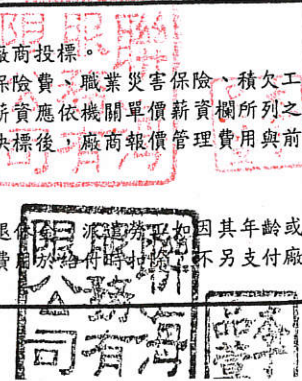 廠商投標。
保險費、職業災害保險、積欠工
薪資應依機關單價薪資欄所列之
決標後，廠商報價管理費用與前
退休金，派遣勞工如因其年齡或
費用於給付時扣除，不另支付廠
限公司
服務有
聯海